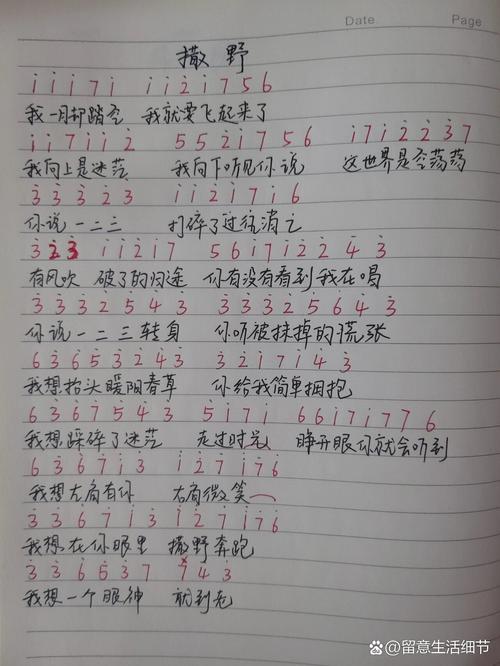 Date Page
撒野
i i i 7 i i i 2̇ i 7 5 6
我一脚踏空 我就要飞起来了
i i 7 i i 2̇ 5 5 2̇ i 7 5 6 i 7 i 2̇ 2̇ 3̇ 7
我向上是迷茫 我向下听见你说 这世界是空荡荡
3̇ 3̇ 3̇ 2̇ 3̇ i i 2̇ i 7 i 6
你说一二三 打碎了过往消亡
3̇ 2̇ 3̇ i i 2̇ i 7 5 6 i 7 i 2̇ 2̇ 4̇ 3̇
有风吹 破了的归途 你有没有看到我在唱
3̇ 3̇ 3̇ 2̇ 5̇ 4̇ 3̇ 3̇ 3̇ 3̇ 2̇ 5̇ 6̇ 4̇ 3̇
你说一二三转身 你听被抹掉的慌张
6 3̇ 6 5̇ 3̇ 2̇ 4̇ 3̇ 3̇ 2̇ i 7 i 4̇ 3̇
我想抬头暖阳春草 你给我简单拥抱
6 3̇ 6 7 5̇ 4̇ 3̇ 5 i 7 i 6 6 i 7 i 7 7 6
我想踩碎了迷茫 走过时光 睁开眼你就会听到
6 3̇ 6 7 i 3̇ i 2̇ 7 i 7 6
我想左肩有你 右肩微笑
3̇ 3̇ 6 7 i 3̇ i 2̇ 7 i 7 6
我想在你眼里 撒野奔跑
3̇ 3̇ 6 5̇ 3̇ 7 7 4̇ 3̇
我想一个眼神 就到老
留意生活细节